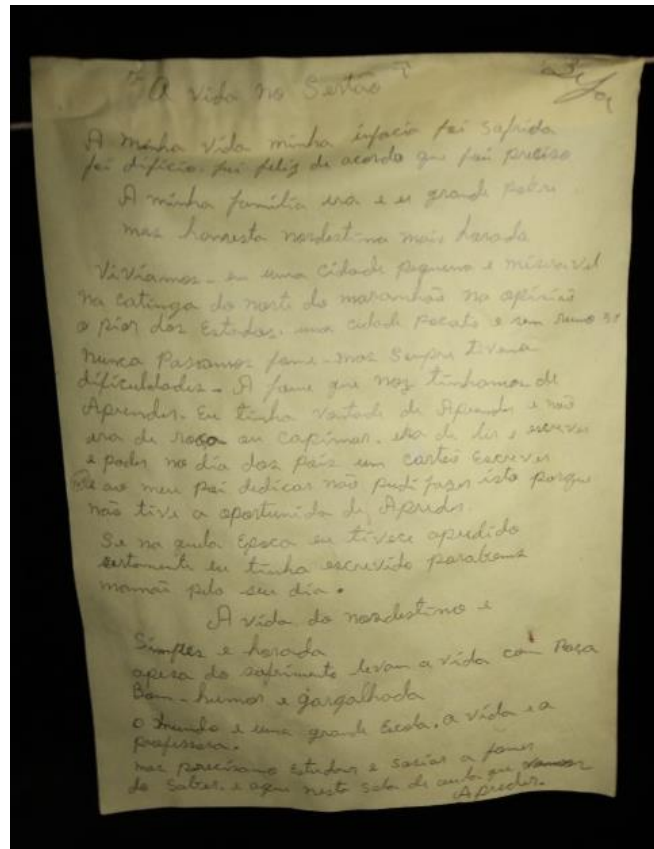 "A vida no Sertão"
A minha vida minha ifacia foi Sofrida
foi dificio. fui feliz de acordo que foi preciso
A minha família era e es grande pobre.
mas honresta nordestina mais horada
Vivíamos - en uma cidade pequena e miseravel
na catinga do norte do maranhão na opinião
o pior dos Estados. uma cidade Pacata e sem rumo
Nunca Passamos fome - mas Sempre Tivemos
dificuldades - A fome que nos tinhamos de
Aprender. Eu tinha vontade de Aprender e não
era de roça ou capinar. era de ler e escrever
e poder no dia dos Pais um cartão Escrever
e ao meu pai dedicar não pudi fazer isto porque
não tive a oportunida di Apreder.
Se na quela Epoca eu tivece apredido
sertamente eu tinha escrevido parabens
mamãe pelo seu dia.
A vida do nordestino e
Simples e horada
apesa do sofrimento levam a vida com Raça
Bom - humor e gargalhada
o mundo e uma grande Escola. a vida e a
professora.
mas precisamo Estudar e Saciar a fome
do Saber. e aqui nesta Sala de aula que vamos
Apreder.